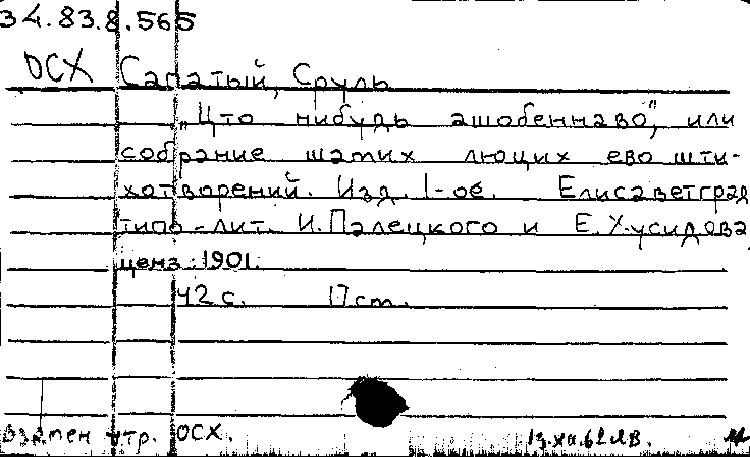 34.83.8.565
ОСХ Сапатый, Сруль
„Що нибудь ашобеннаво", или
собрание шамих люцих ево шти-
хатворений. Изд. 1-ое. Елисаветград
типо-лит. И. Палецкого и Е. Хусидова,
ценз. 1901.
42 с. 17 cm.
Взамен утр. ОСХ.